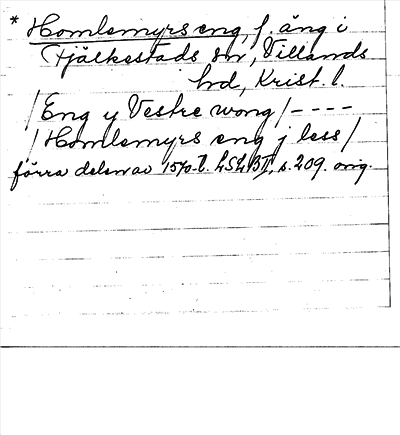 * Homlemyrs eng, f. äng i
Fjälkestads sn, Villands
hrd, Krist. l.
/Eng y Vestre wong/----
/Homlemyrs eng j less/
förra delen av 1570-t. LSLBII, s. 209. orig.